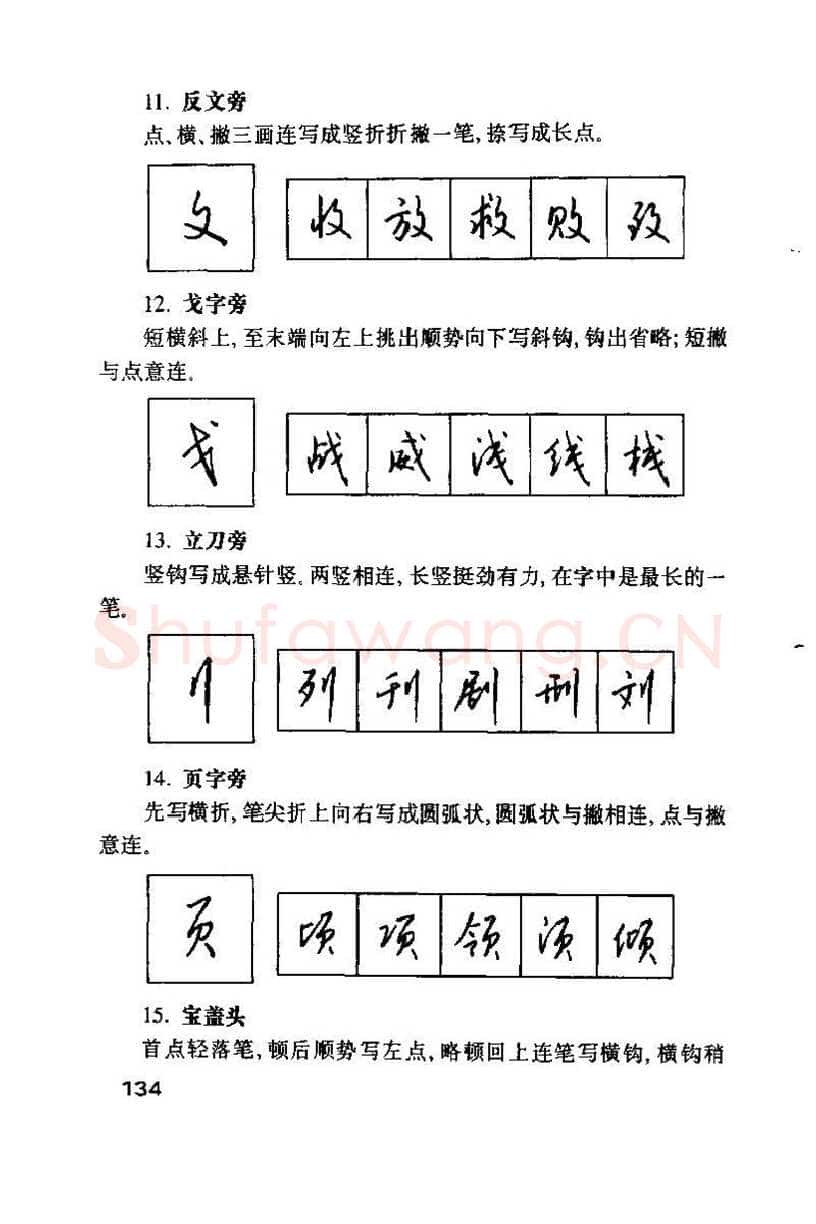 11. 反文旁
点、横、撇三画连写成竖折折撇一笔,捺写成长点。
攵 收 放 救 败 致
12. 戈字旁
短横斜上,至末端向左上挑出顺势向下写斜钩,钩出省略;短撇
与点意连。
戈 战 威 浅 线 栈
13. 立刀旁
竖钩写成悬针竖。两竖相连,长竖挺劲有力,在字中是最长的一
笔。
Shufawang.CN
刂 列 刊 剧 刑 刘
14. 页字旁
先写横折,笔尖折上向右写成圆弧状,圆弧状与撇相连,点与撇
意连。
页 顷 项 领 须 倾
15. 宝盖头
首点轻落笔,顿后顺势写左点,略顿回上连笔写横钩,横钩稍
134